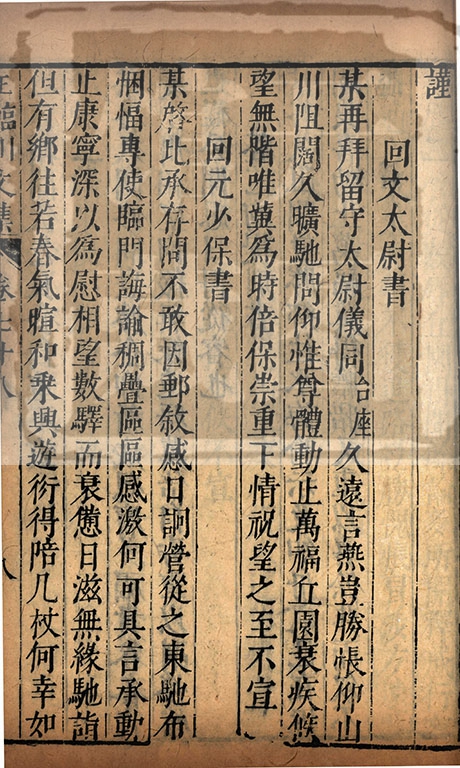 謹
回文太尉書
某再拜留守太尉儀同台座久遠言燕豈勝悵仰山
川阻闊久曠馳問仰惟尊體動止萬福丘園衰疾候
望無階唯冀爲時倍保崇重下情祝望之至不宣
回元少保書
某啓比承存問不敢因郵敘感日詗營從之東馳布
悃愊專使臨門誨諭稠疊區區感激何可具言承動
止康寧深以爲慰相望數驛而衰憊日滋無緣馳詣
但有鄉往若春氣暄和乘興遊衍得陪几杖何幸如
王臨川文集 卷七十八 八